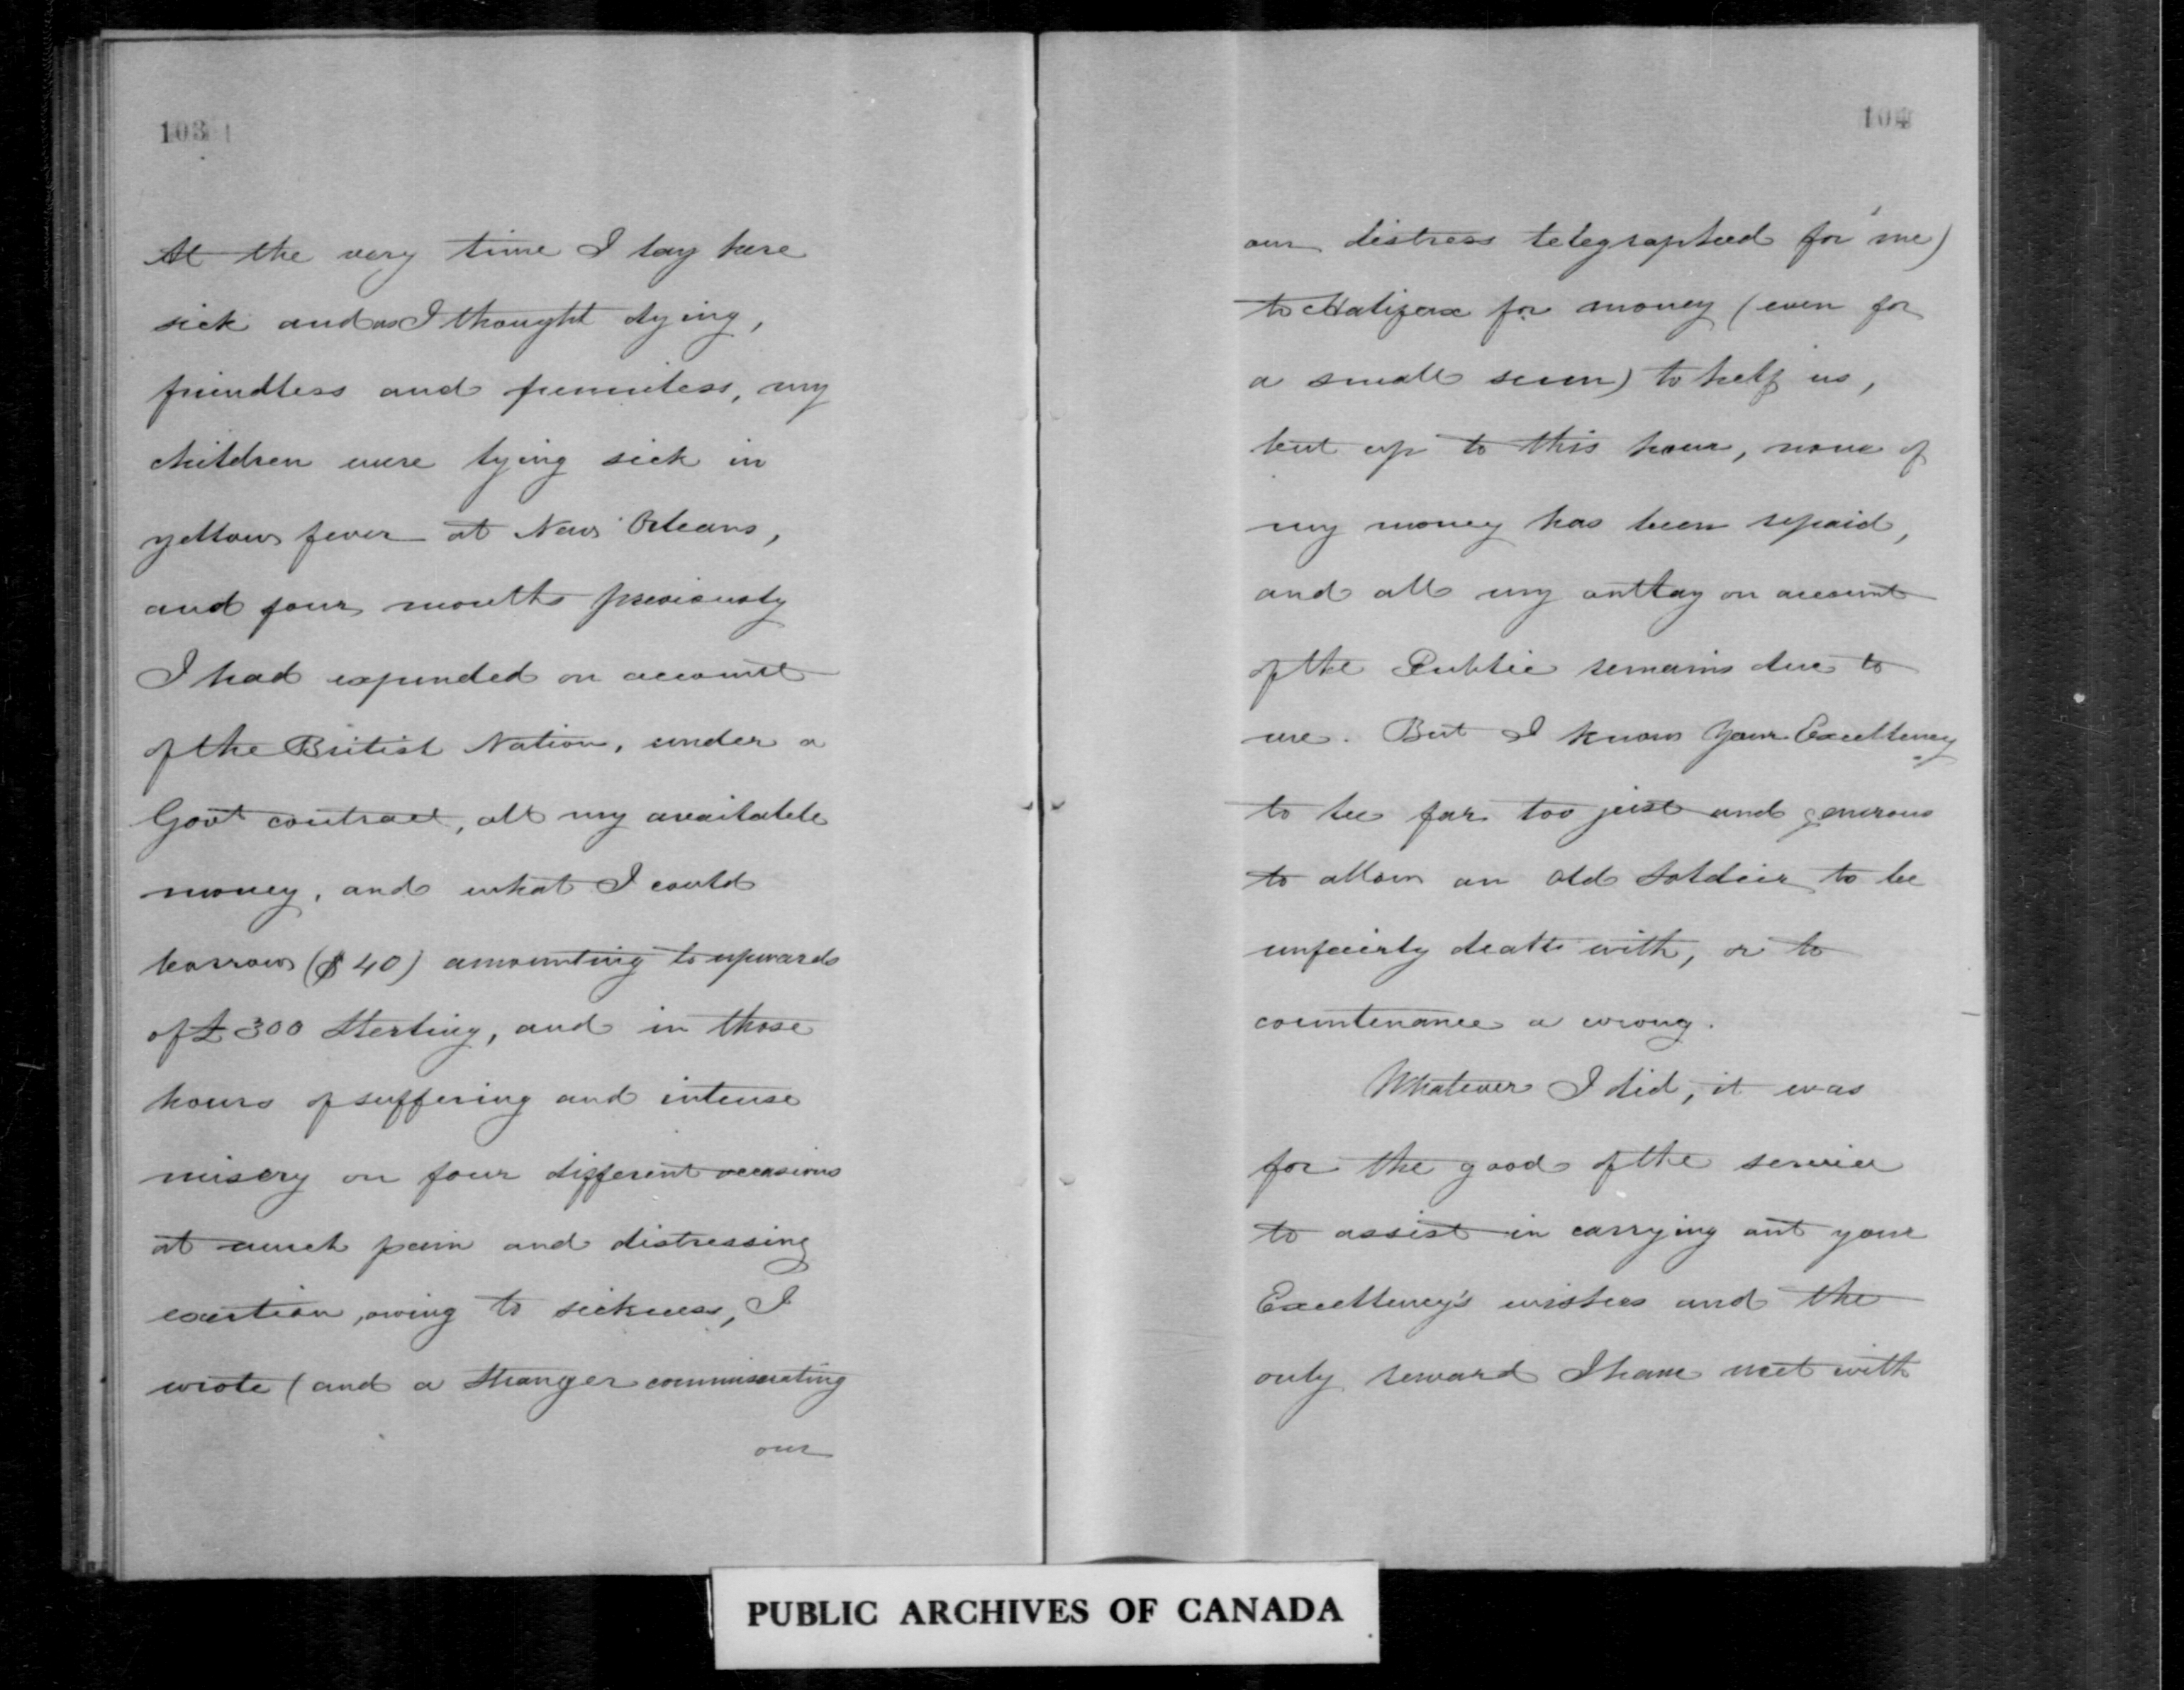 103
At the very time I lay here
sick and as I thought dying,
friendless and penniless, my
children were lying sick in
yellow fever at New Orleans,
and four months previously
I had expended on account
of the British Nation, under a
Govt contract, all my available
money, and what I could
borrow ($40) amounting to upwards
of £300 Sterling, and in those
hours of suffering and intense
misery on four different occasions
at much pain and distressing
exertion, owing to sickness, I
wrote (and a stranger commiserating
our
104
our distress telegraphed for me)
to Halifax for money (even for
a small sum) to help us,
but up to this hour, none of
my money has been repaid,
and all my outlay on account
of the Public remains due to
me. But I know Your Excellency
to be far too just and generous
to allow an old Soldier to be
unfairly dealt with, or to
countenance a wrong.
Whatever I did, it was
for the good of the service
to assist in carrying out your
Excellency's wishes and the
only reward I have met with
PUBLIC ARCHIVES OF CANADA